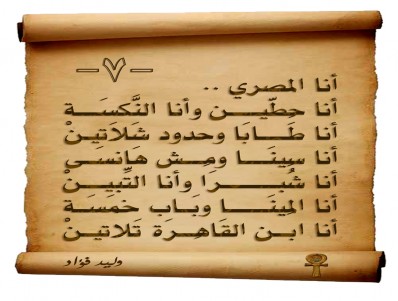 —٧—
أنا المصري ..
أنا حِطّيـن وأنا النَّكسَـة
أنا طَـابَا وحدود شلاتينْ
أنا سِينَـا ومِش هَانسَـى
أنا شُبـرَا وأنا التِّبيـنْ
أنا المِينَـا وبَـاب خمسَـة
أنا ابن القَاهِـرَة تَلاتينْ
وليد فؤاد